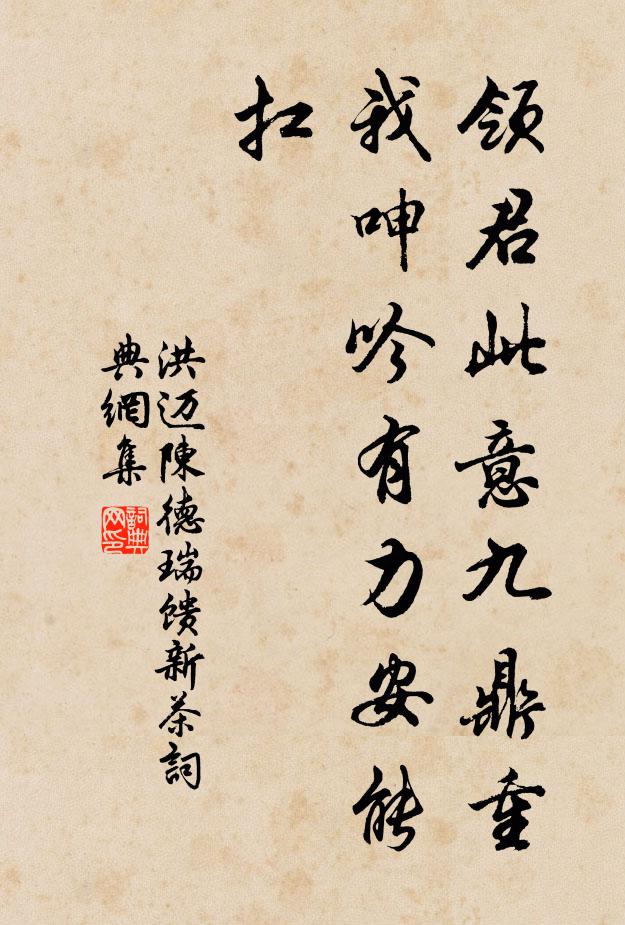 領君此意九鼎重
我呻吟有力安能
扛
洪迈陳德瑞馈新茶詞
典網集
詞典
网印